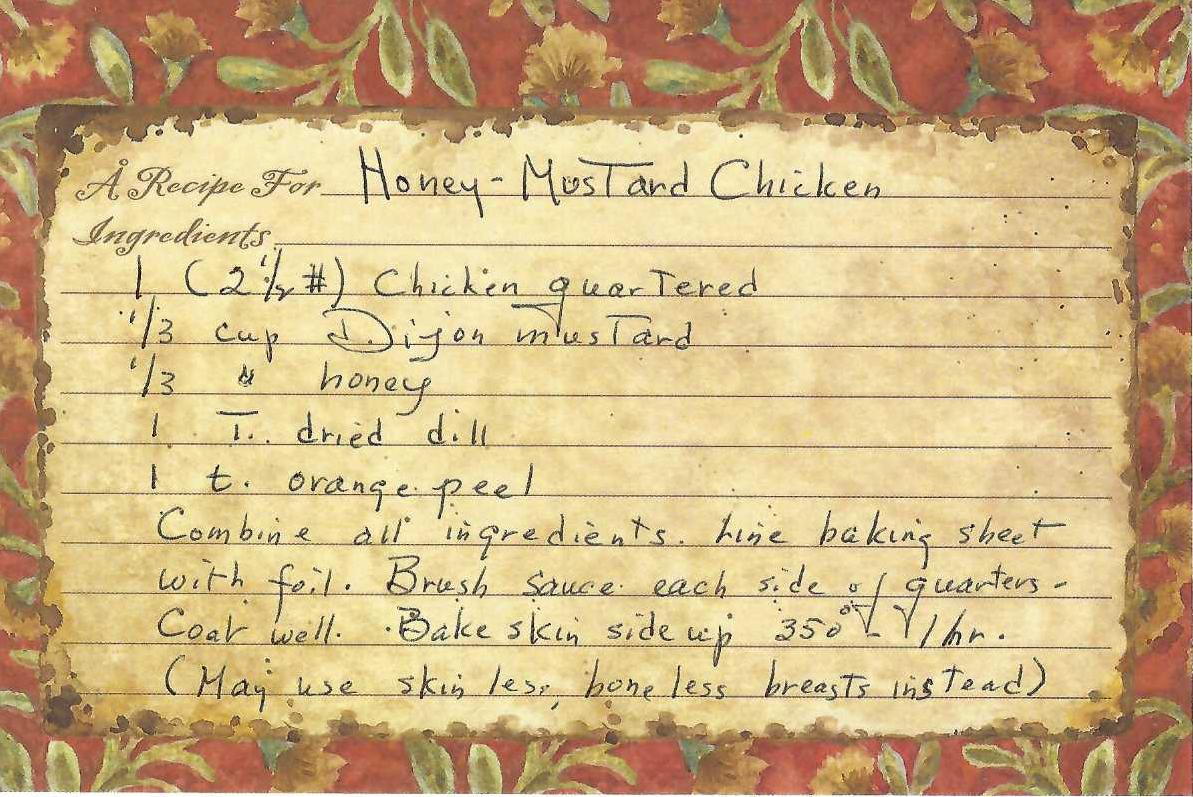 A Recipe For Honey-Mustard Chicken
Ingredients
1 (2 1/2 #) Chicken quartered
1/3 cup Dijon mustard
1/3 " honey
1 T. dried dill
1 t. orange peel
Combine all ingredients. Line baking sheet
with foil. Brush sauce each side of quarters -
Coat well. Bake skin side up 350° - 1 hr.
(May use skinless, boneless breasts instead)